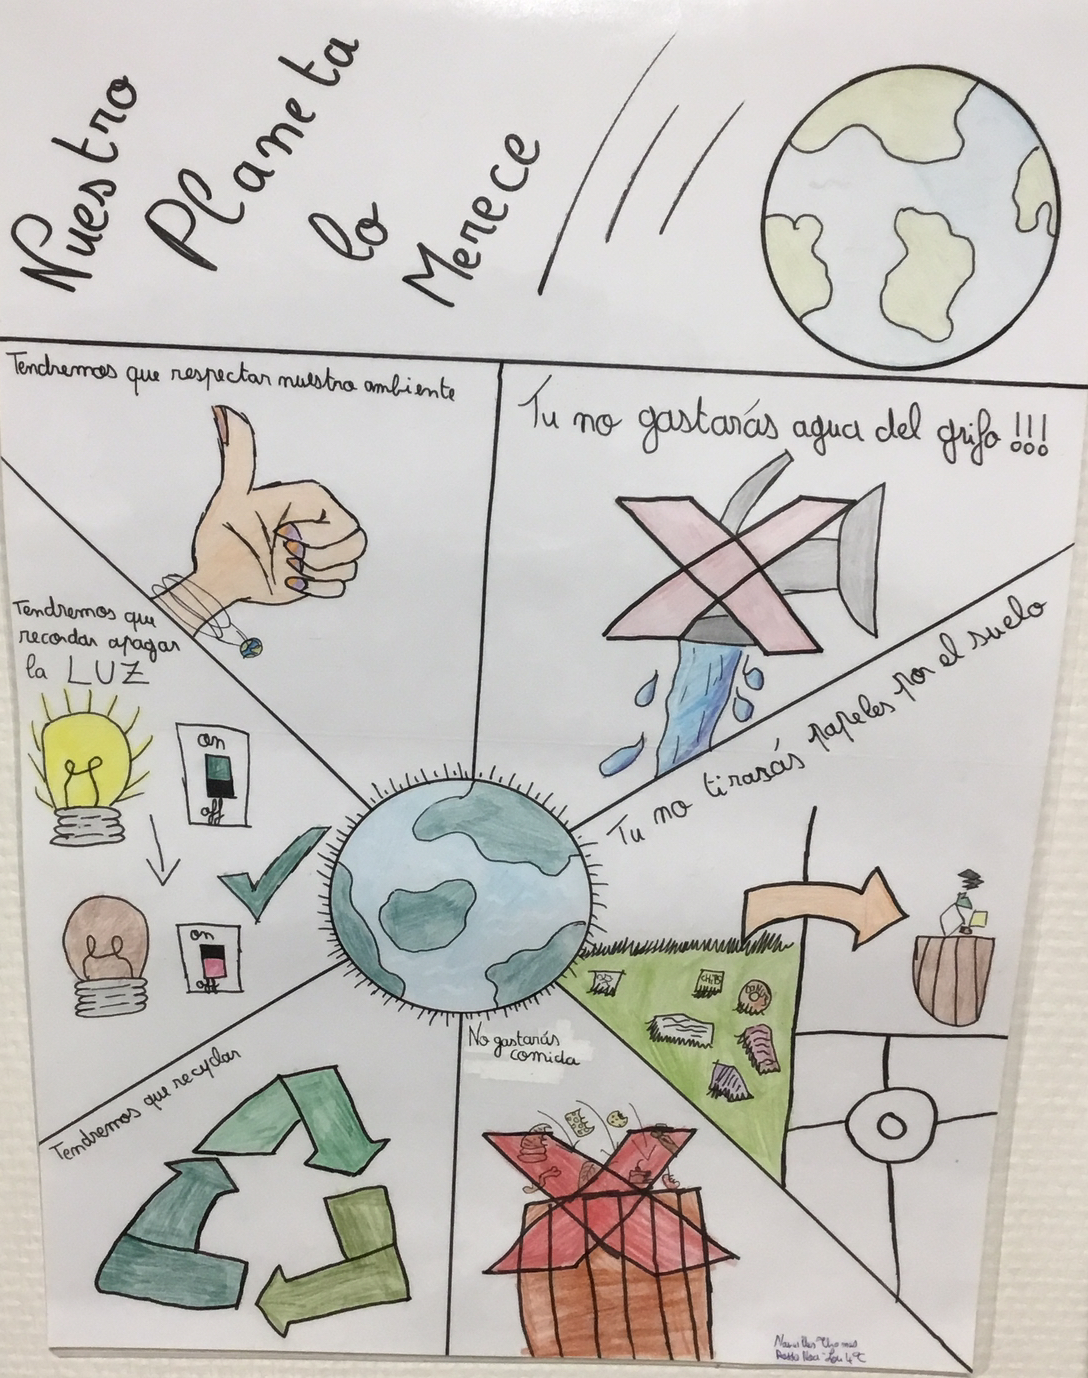 Nuestro
Planeta
lo
Merece
Tendremos que respectar nuestro ambiente
Tu no gastarás agua del grifo !!!
Tendremos que
recordar apagar
la LUZ
on
off
on
off
Tu no tirarás papeles por el suelo
CHIPS
No gastarás
comida
Tendremos que recyclar
4°C